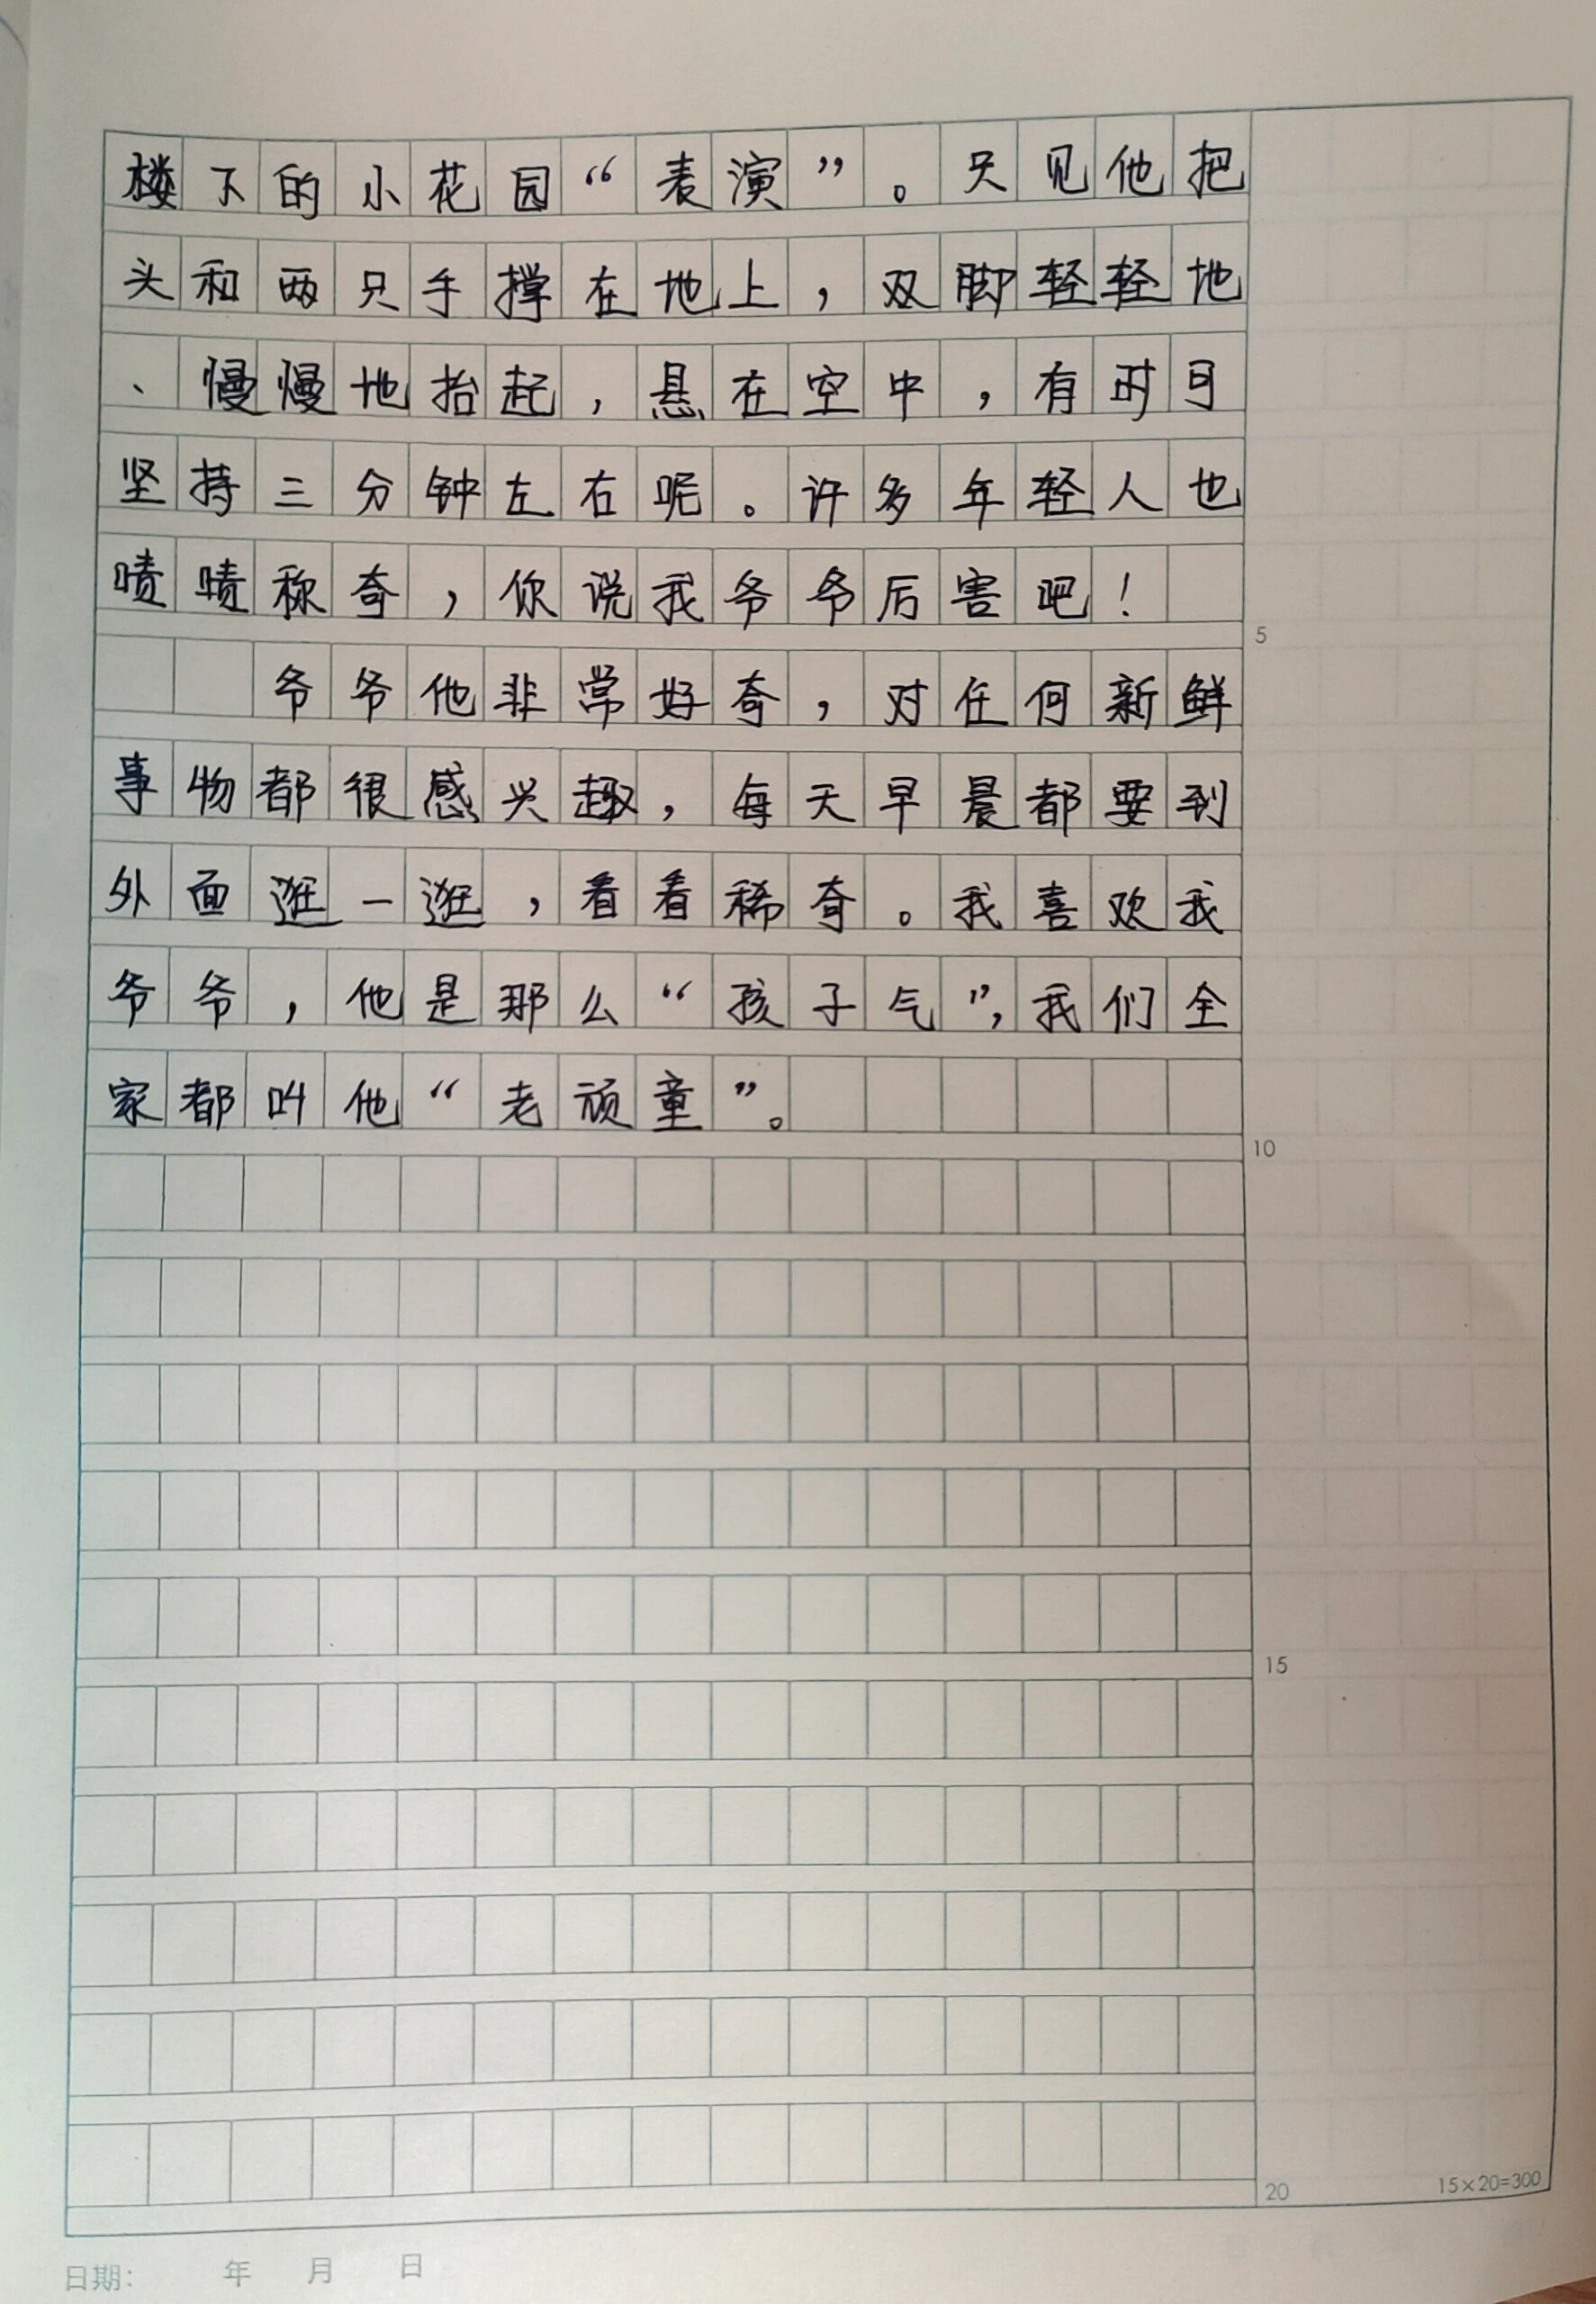 楼下的小花园“表演”。只见他把
头和两只手撑在地上，双脚轻轻地
、慢慢地抬起，悬在空中，有时可
坚持三分钟左右呢。许多年轻人也
啧啧称奇，你说我爷爷厉害吧！
5
爷爷他非常好奇，对任何新鲜
事物都很感兴趣，每天早晨都要到
外面逛一逛，看看稀奇。我喜欢我
爷爷，他是那么“孩子气”，我们全
家都叫他“老顽童”。
10
15
20
15×20=300
日期： 年 月 日